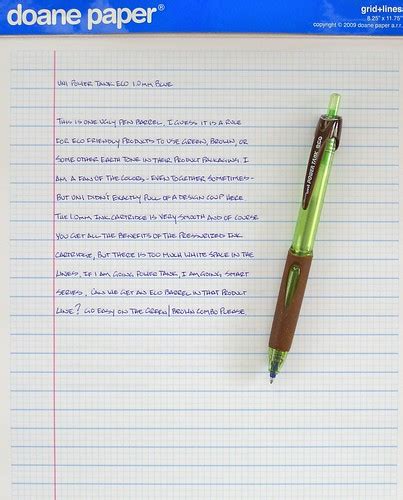 doane paper®
grid+lines
8.25" x 11.75"
copyright © 2009 doane paper a.r.r.
UNI POWER TANK ECO 1.0MM BLUE
THIS IS ONE UGLY PEN BARREL. I GUESS IT IS A RULE
FOR ECO FRIENDLY PRODUCTS TO USE GREEN, BROWN, OR
SOME OTHER EARTH TONE IN THEIR PRODUCT PACKAGING. I
AM A FAN OF THE COLORS - EVEN TOGETHER SOMETIMES -
BUT UNI DIDN'T EXACTLY PULL OF A DESIGN COUP HERE
THE 1.0MM INK CARTRIDGE IS VERY SMOOTH AND OF COURSE
YOU GET ALL THE BENEFITS OF THE PRESSURIZED INK
CARTRIDGE, BUT THERE IS TOO MUCH WHITE SPACE IN THE
LINES. IF I AM GOING POWER TANK, I AM GOING SMART
SERIES. CAN WE GET AN ECO BARREL IN THAT PRODUCT
LINE? GO EASY ON THE GREEN/BROWN COMBO PLEASE.
uni POWER TANK ECO